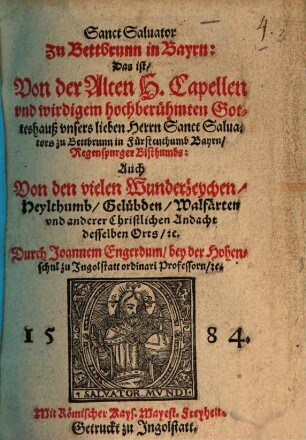 4.
Sanct Saluator
Zu Bettbrunn in Bayrn:
Das ist/
Von der Alten H. Capellen
vnd wirdigem hochberühmten Got-
teshauß vnsers lieben Herrn Sanct Salua-
tors zu Bettbrunn in Fürstenthumb Bayrn/
Regenspurger Bisthumbs:
Auch
Von den vielen Wunderzeychen/
Heylthumb/ Gelübden/ Walfärten
vnd anderer Christlichen Andacht
desselben Orts/ ꝛc.
Durch Joannem Engerdum/ bey der Hohen-
schul zu Ingolstatt ordinari Professorn/ ꝛc.
15 84.
SALVATOR MVNDI
Mit Römischer Kays. Mayest. Freyheit.
Getruckt zu Ingolstatt.